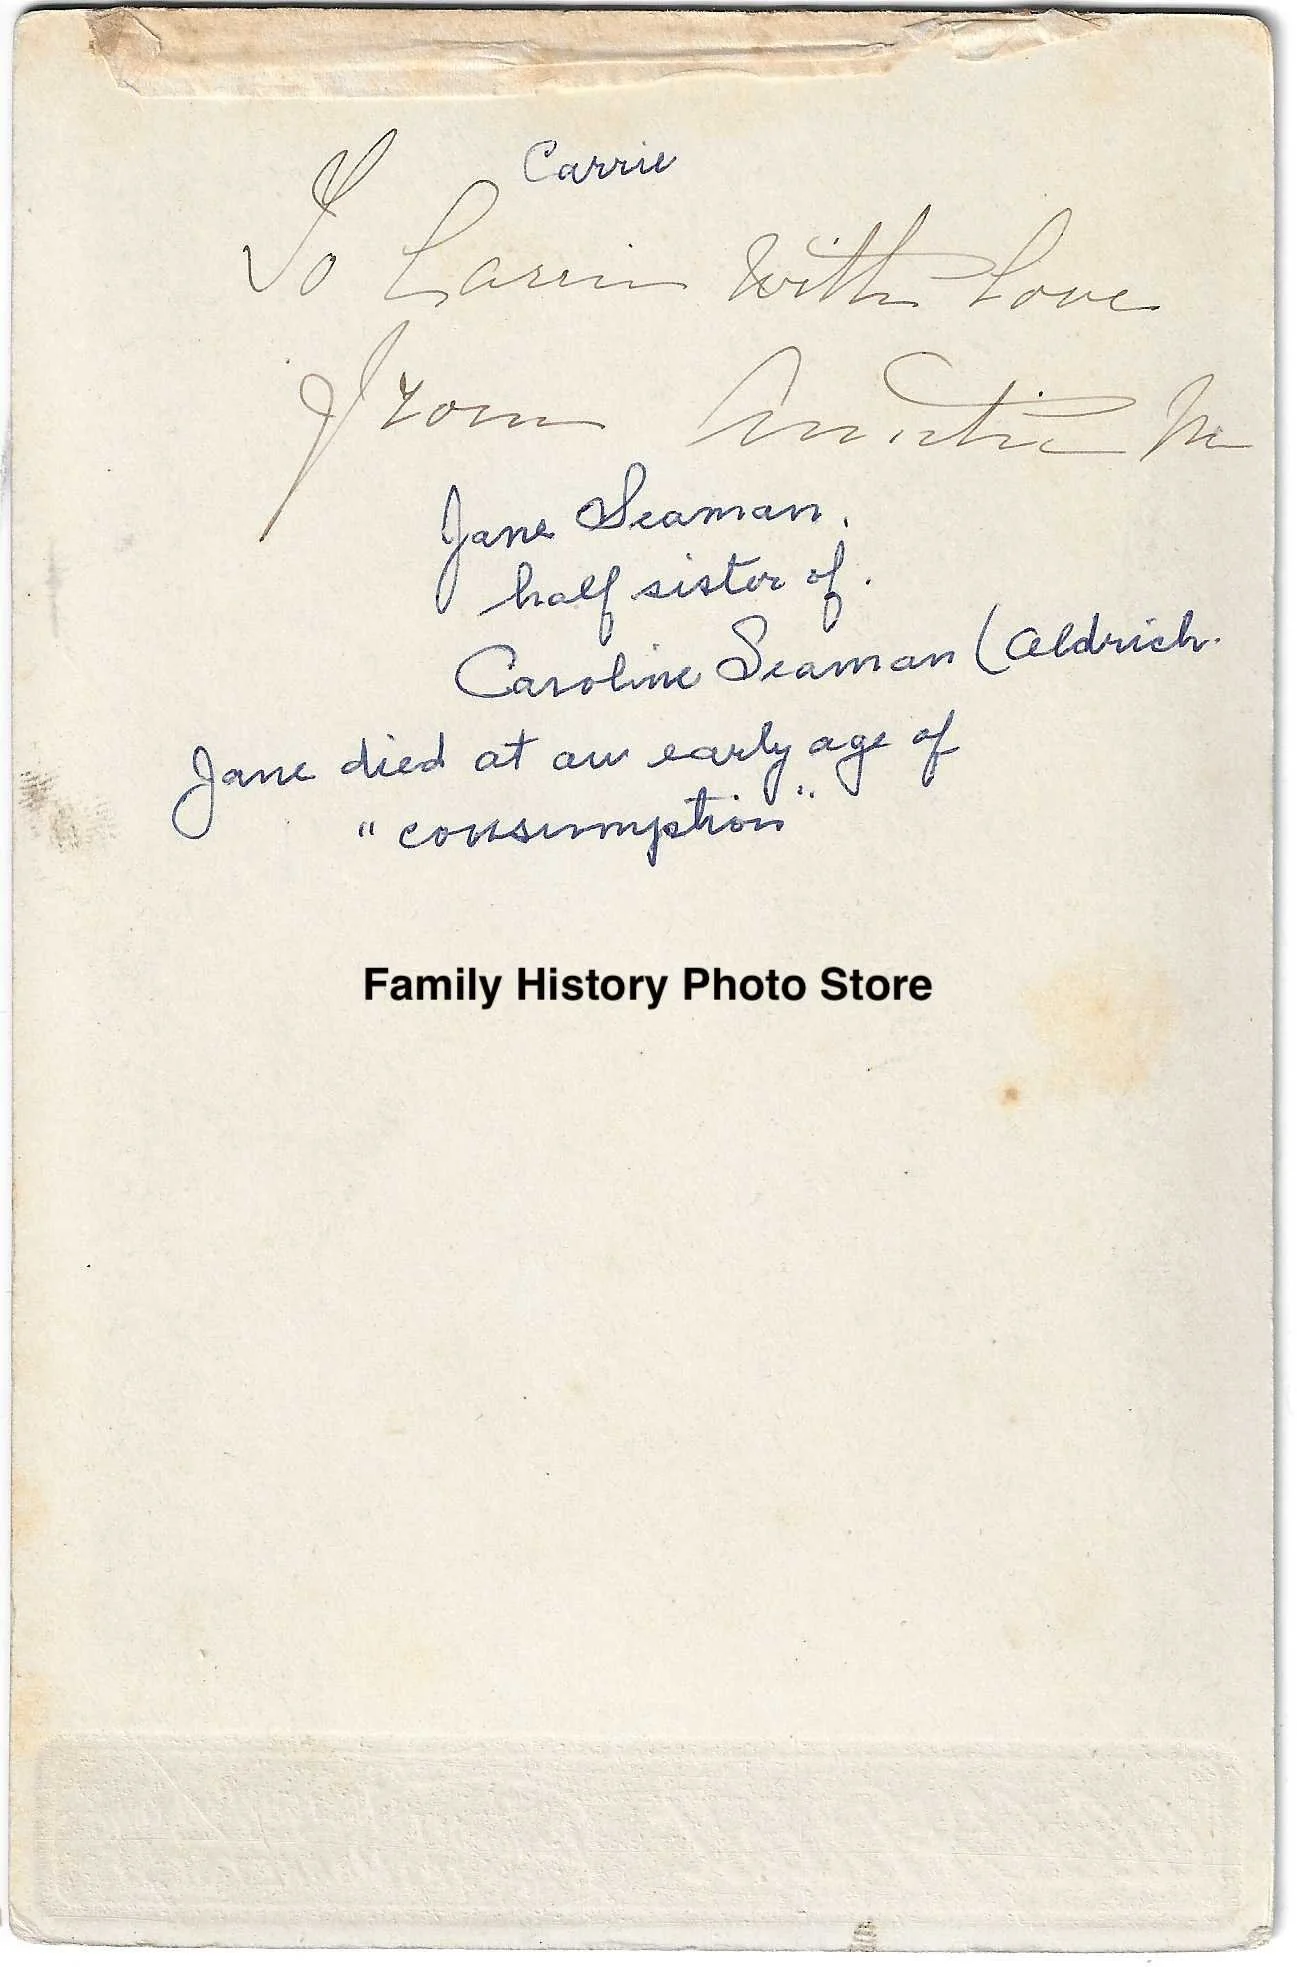 Carrie
To Carrie with love
from Auntie M
Jane Seaman.
half sister of.
Caroline Seaman (Aldrich.
Jane died at an early age of
"consumption"
Family History Photo Store